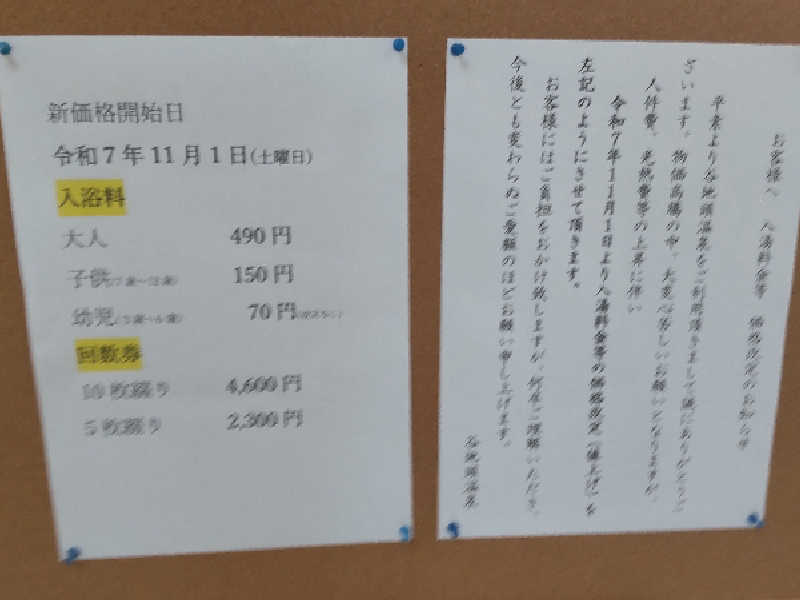 新価格開始日
令和７年１１月１日(土曜日)
入浴料
大人 490円
子供 150円
幼児 70円
回数券
10枚綴り 4,600円
5枚綴り 2,300円
お客様へ 入湯料金等 価格改定のお知らせ
平素より谷地頭温泉をご利用頂きまして誠にありがとうご
ざいます。物価高騰の中、大変心苦しいお願いとなりますが、
人件費、光熱費等の上昇に伴い
令和７年１１月１日より入湯料金等の価格改定（値上げ）を
左記のようにさせて頂きます。
お客様にはご負担をおかけ致しますが、何卒ご理解いただき、
今後とも変わらぬご愛顧のほどお願い申し上げます。
谷地頭温泉